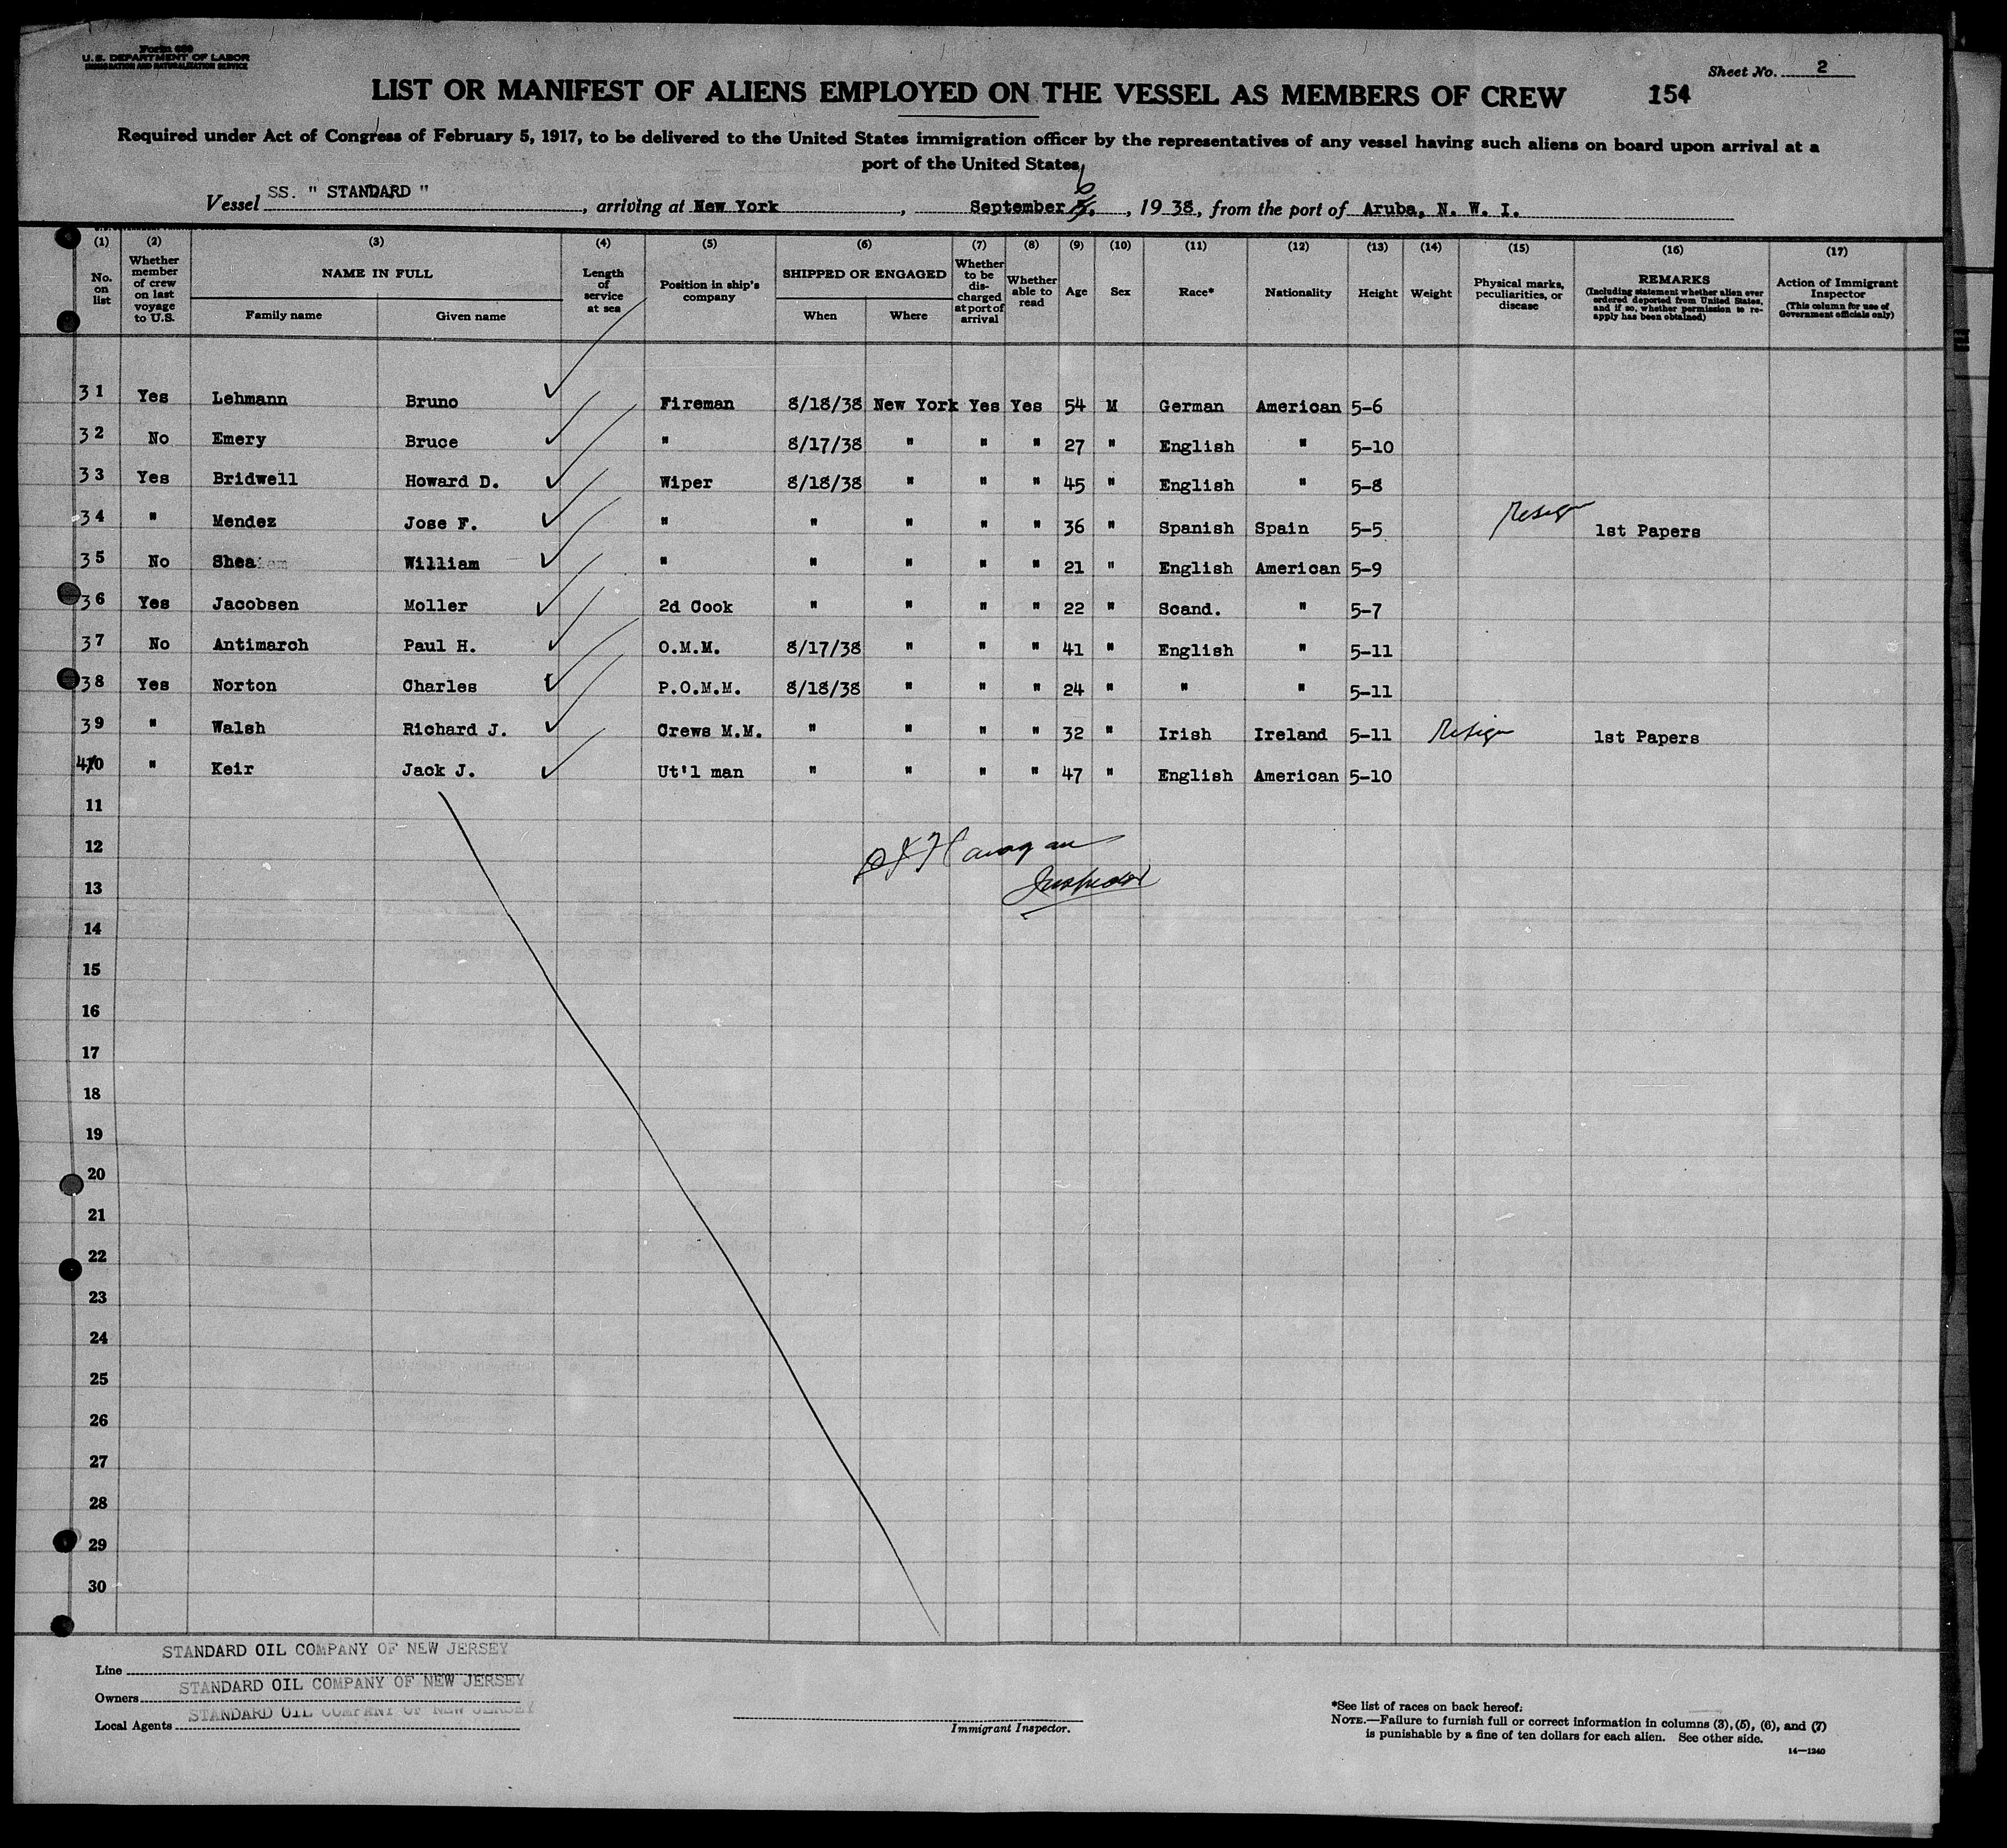 Form 680
U.S. DEPARTMENT OF LABOR
IMMIGRATION AND NATURALIZATION SERVICE
Sheet No. 2
LIST OR MANIFEST OF ALIENS EMPLOYED ON THE VESSEL AS MEMBERS OF CREW 154
Required under Act of Congress of February 5, 1917, to be delivered to the United States immigration officer by the representatives of any vessel having such aliens on board upon arrival at a
port of the United States
Vessel SS. " STANDARD ", arriving at New York, September 6, 1938, from the port of Aruba, N. W. I.
(1) (2) (3) (4) (5) (6) (7) (8) (9) (10) (11) (12) (13) (14) (15) (16) (17)
No. on list Whether member of crew on last voyage to U.S. NAME IN FULL Family name Given name Length of service at sea Position in ship's company SHIPPED OR ENGAGED When Where Whether to be discharged at port of arrival Whether able to read Age Sex Race* Nationality Height Weight Physical marks, peculiarities, or disease REMARKS (Including statement whether alien ever ordered deported from United States, and if so, whether permission to reapply has been obtained) Action of Immigrant Inspector (This column for use of Government officials only)
31 Yes Lehmann Bruno Fireman 8/18/38 New York Yes Yes 54 M German American 5-6
32 No Emery Bruce " 8/17/38 " " " 27 " English " 5-10
33 Yes Bridwell Howard D. Wiper 8/18/38 " " " 45 " English " 5-8
34 " Mendez Jose F. " " " " " 36 " Spanish Spain 5-5 Resign 1st Papers
35 No Shea William " " " " " 21 " English American 5-9
36 Yes Jacobsen Moller 2d Cook " " " " 22 " Scand. " 5-7
37 No Antimarch Paul H. O.M.M. 8/17/38 " " " 41 " English " 5-11
38 Yes Norton Charles P.O.M.M. 8/18/38 " " " 24 " " " 5-11
39 " Walsh Richard J. Crews M.M. " " " " 32 " Irish Ireland 5-11 Resign 1st Papers
40 " Keir Jack J. Ut'l man " " " " 47 " English American 5-10
11
12
13 Inspector
14
15
16
17
18
19
20
21
22
23
24
25
26
27
28
29
30
Line STANDARD OIL COMPANY OF NEW JERSEY
Owners STANDARD OIL COMPANY OF NEW JERSEY
Local Agents STANDARD OIL COMPANY OF NEW JERSEY
Immigrant Inspector.
*See list of races on back hereof.
NOTE.—Failure to furnish full or correct information in columns (3), (5), (6), and (7)
is punishable by a fine of ten dollars for each alien. See other side.
14—1240